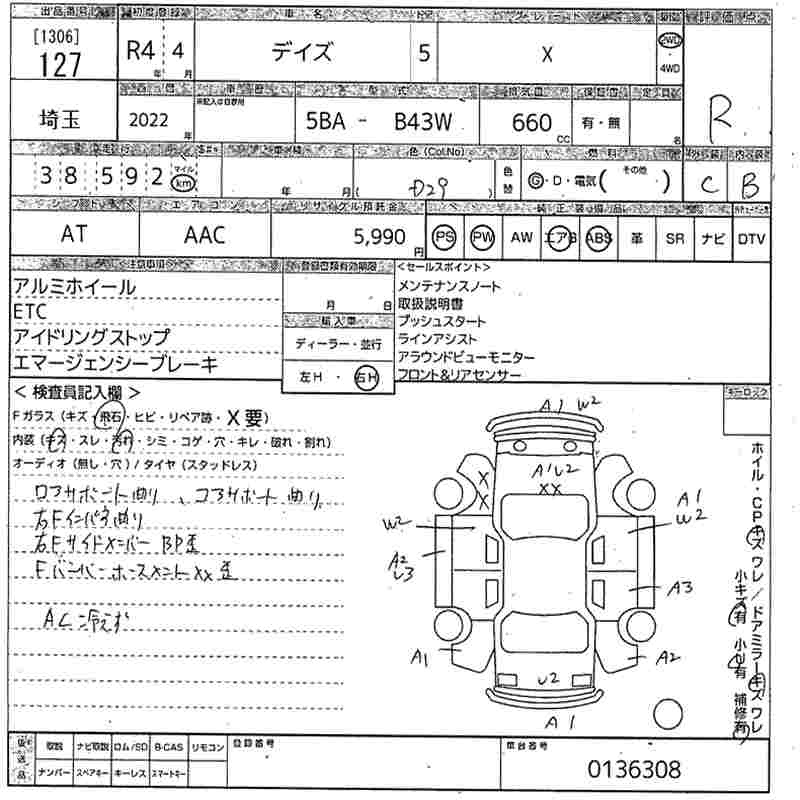 出品番号 初度登録 車名 ドア グレード 駆動 評価点
[1306]
127
R4 年 4 月
デイズ 5 X
2WD
・4WD
R
埼玉
2022 年
車歴 ※記入は自家用
型式
5BA - B43W
排気量
660 CC
保証書
有・無
定員
名
走行
38592
マイル
km
車検
年 月
色(Col.No)
( D29 )
色替
燃料
G・D・電気( その他 )
外装 内装
C B
シフト エアコン リサイクル預託金 純正装備品
AT AAC 5,990 円
PS PW AW エアB ABS 革 SR ナビ DTV
注意事項
アルミホイール
ETC
アイドリングストップ
エマージェンシーブレーキ
登録書類有効期限
月 日
輸入車
ディーラー・並行
左H・右H
<セールスポイント>
メンテナンスノート
取扱説明書
プッシュスタート
ラインアシスト
アラウンドビューモニター
フロント&リアセンサー
キーロック
<検査員記入欄>
Fガラス(キズ・飛石・ヒビ・リペア跡・X要)
内装(キズ・スレ・汚れ・シミ・コゲ・穴・キレ・破れ・割れ)
オーディオ(無し・穴)/タイヤ(スタッドレス)
ロアサポート曲り、コアサポート曲り
右Fインパネ曲り
右Fサイドメンバー BP歪
Fバンパーホースメント XX歪
AC冷えず
A1 W2
A1U2
XX
X
X
W2
A1
W2
A2
U3
A3
A1
A2
U2
A1
ホイル・CPキズワレ/ドアミラーキズワレ
小キズ有 小U有 補修有
後送品
取説 ナビ取説 ロム/SD B-CAS リモコン
ナンバー スペアキー キーレス スマートキー
登録番号
車台番号
0136308